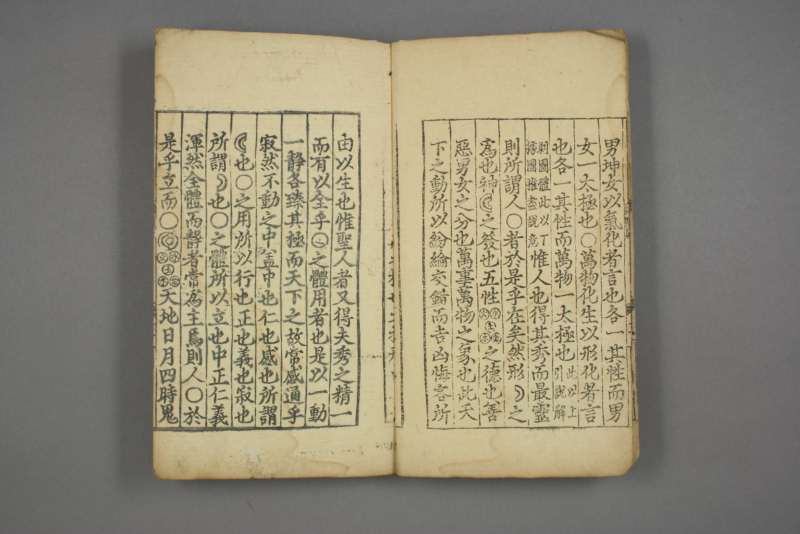 男坤女以氣化者言也各一其性而男
女一太極也〇萬物化生以形化者言
也各一其性而萬物一太極也此以上
引說解
剥圖體此以下
據圖推盡說意惟人也得其秀而最靈
則所謂人〇者於是乎在矣然形之
爲也神之發也五性之德也善
惡男女之分也萬事萬物之象也此天
下之動所以紛綸交錯而吉凶悔吝所
由以生也惟聖人者又得夫秀之精一
而有以全乎〇之體用者也是以一動
一靜各臻其極而天下之故常感通乎
寂然不動之中盖中也仁也感也所謂
也〇之用所以行也正也義也寂也
所謂也〇之體所以立也中正仁義
渾然全體而靜者常爲主焉則人〇於
是乎立而〇天地日月四時鬼